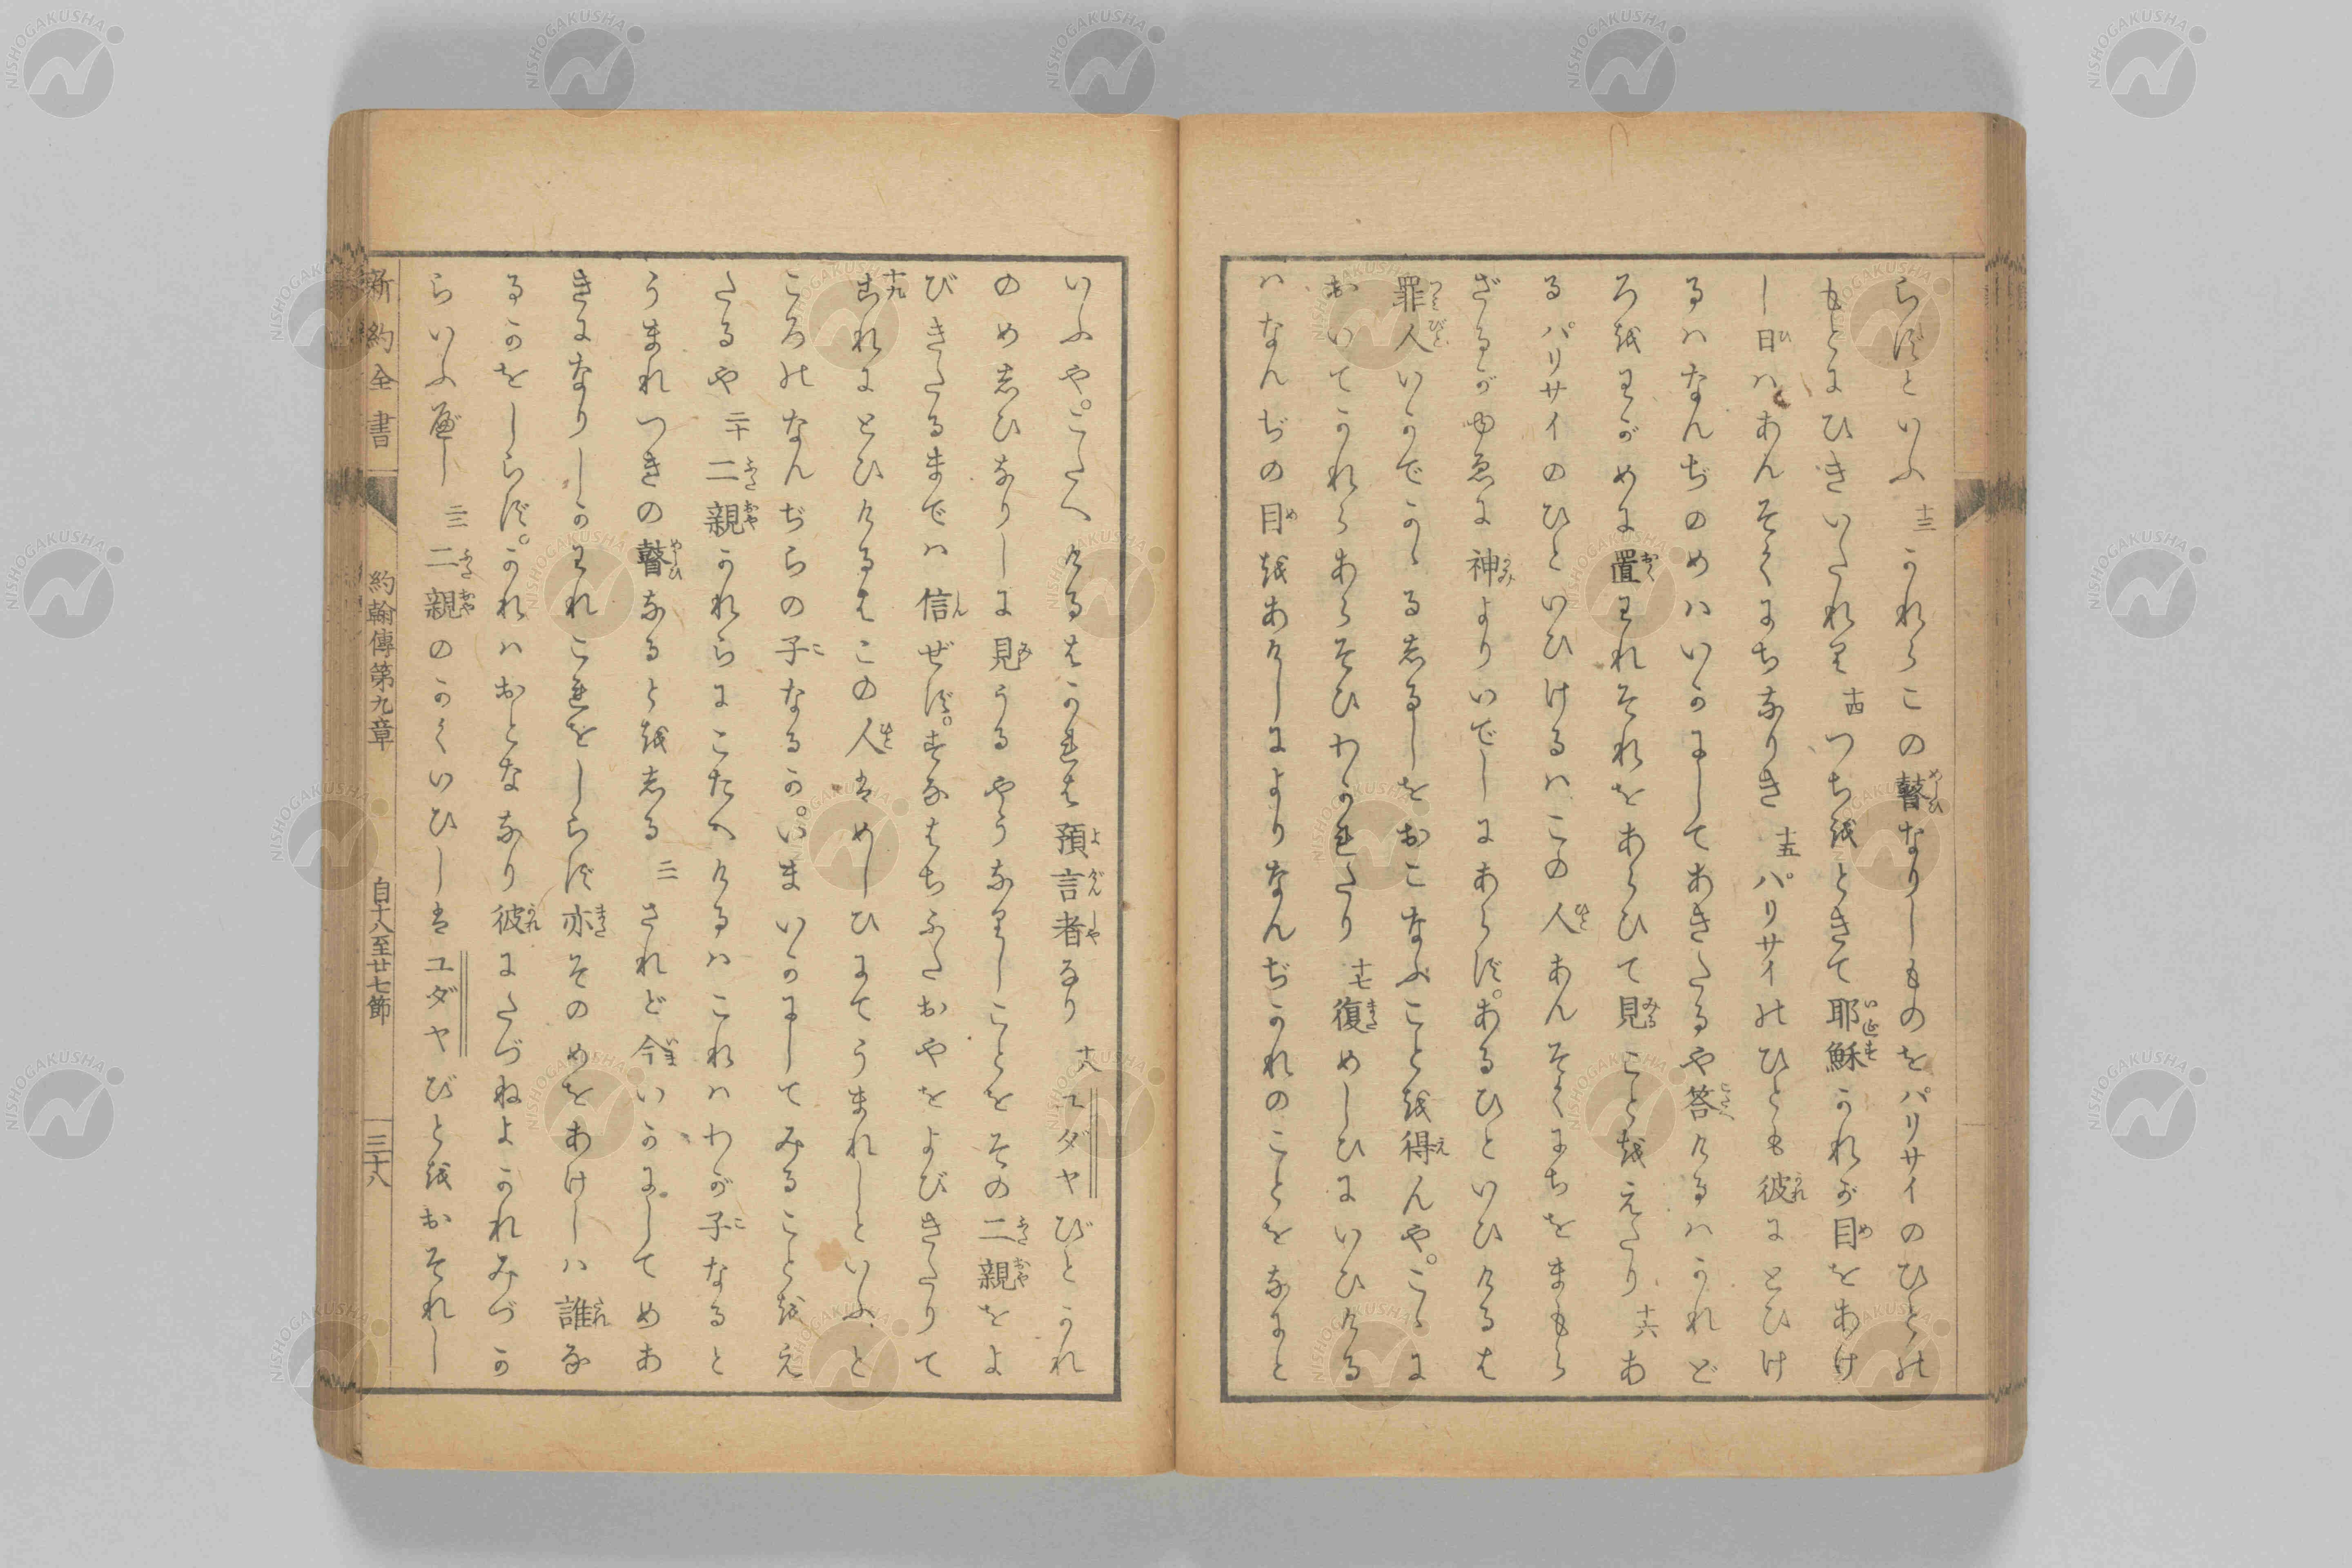 らずといふ 十三 かれらこの瞽なりしものをパリサイのひとの
もとにひきいたれり 十四 つちをときて耶穌かれが目をあけ
し日ハあんそくにちなりき 十五 パリサイのひとも彼にとひけ
るハなんぢのめハいかにしてあきたるや答けるハかれど
ろをわがめに置われそれをあらひて見ことをえたり 十六 あ
るパリサイのひといひけるハこの人あんそくにちをまもら
ざるがゆゑに神よりいでしにあらず。あるひといひけるは
罪人いかでかゝるしるしをおこなふことを得んや。こゝに
おいてかれらあらそひわかれたり 十七 復めしひにいひける
ハなんぢの目をあけしによりなんぢかれのことをなにと
いふや。こたへけるはかれは預言者なり 十八 ユダヤびとかれ
のめしひなりしに見うるやうなりしことをその二親をよ
びきたるまでハ信ぜず。すなはちふたおやをよびきたりて
十九 これにとひけるはこの人はめしひにてうまれしといふと
ころのなんぢらの子なるか。いまいかにしてみることをえ
たるや 二十 二親かれらにこたへけるハこれハわが子なると
うまれつきの瞽なるとをしる 二一 されど今いかにしてめあ
きになりしかわれこれをしらず亦そのめをあけしハ誰な
るかをしらず。かれハおとななり彼にたづねよかれみづか
らいふべし 二二 二親のかくいひしはユダヤびとをおそれし
新約全書 約翰傳第九章 自十八至廿七節 三十八